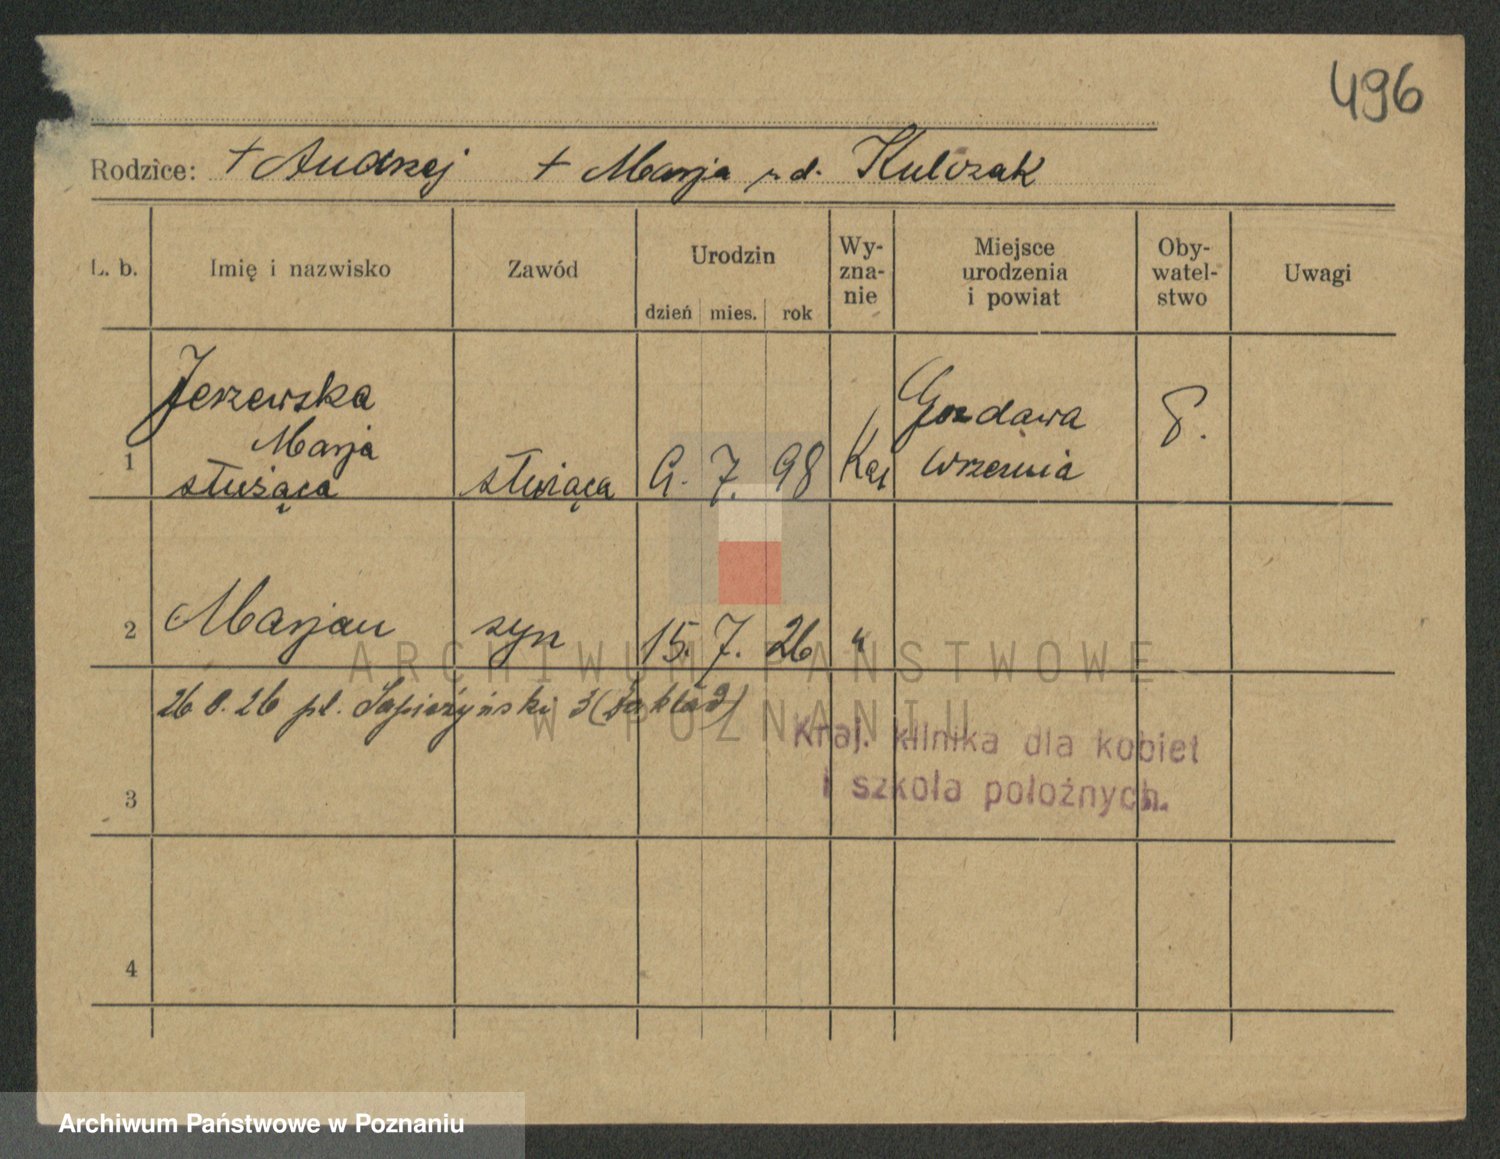 496
Rodzice: + Andrzej + Marja z d. Kulczak
L. b. Imię i nazwisko Zawód Urodzin Wy-zna-nie Miejsce urodzenia i powiat Oby-watel-stwo Uwagi
dzień mies. rok
Jerzewska
Marja
1 służąca służąca 7. 98 Kat Gozdawa Września
2 Marjan syn 15. 7. 26 "
26 8. 26 pl. Sapieżyński 3 (Zakład)
Kraj. klinika dla kobiet
i szkoła położnych.
3
4
ARCHIWUM PAŃSTWOWE
W POZNANIU
Archiwum Państwowe w Poznaniu